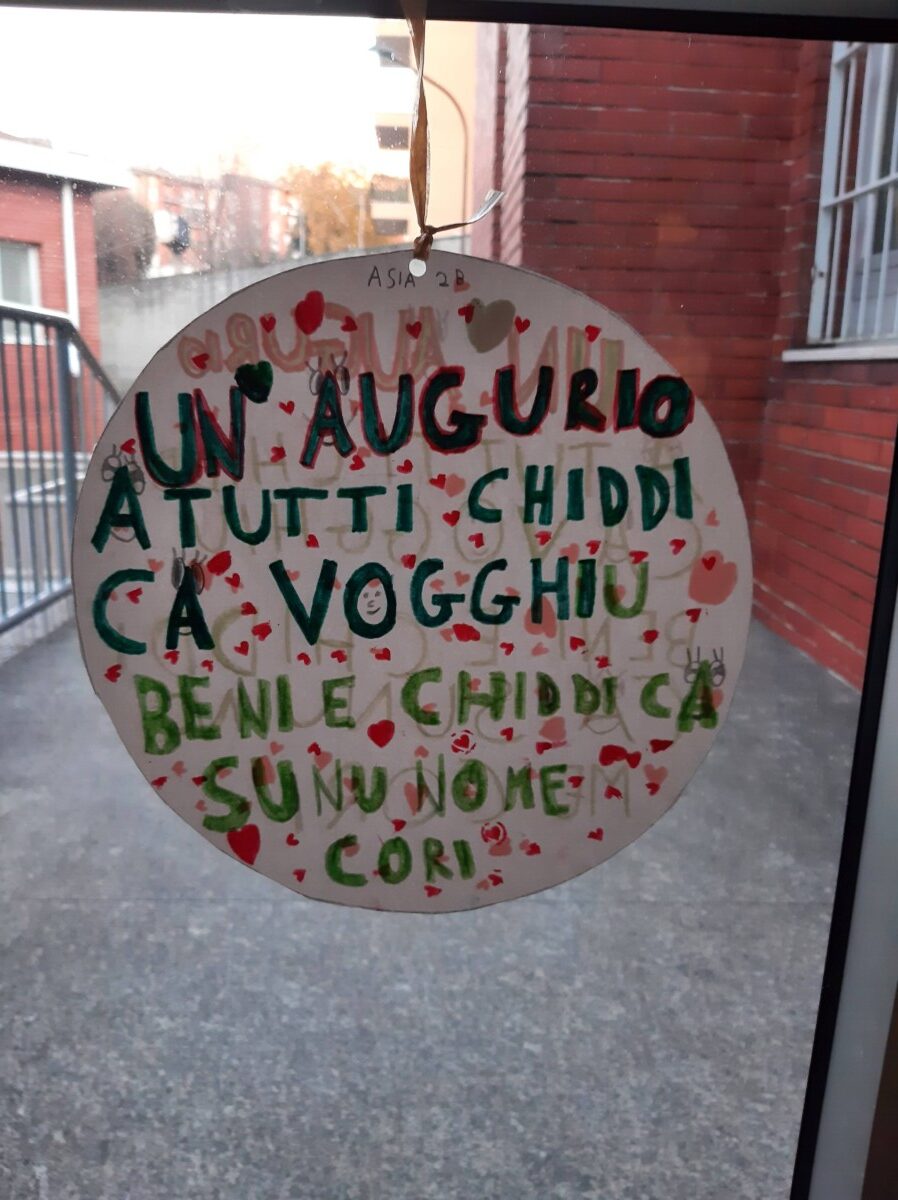 ASIA 2B
UN' AUGURIO
A TUTTI CHIDDI
CA VOGGHIU
BENI E CHIDDI CA
SUNU NO ME
CORI